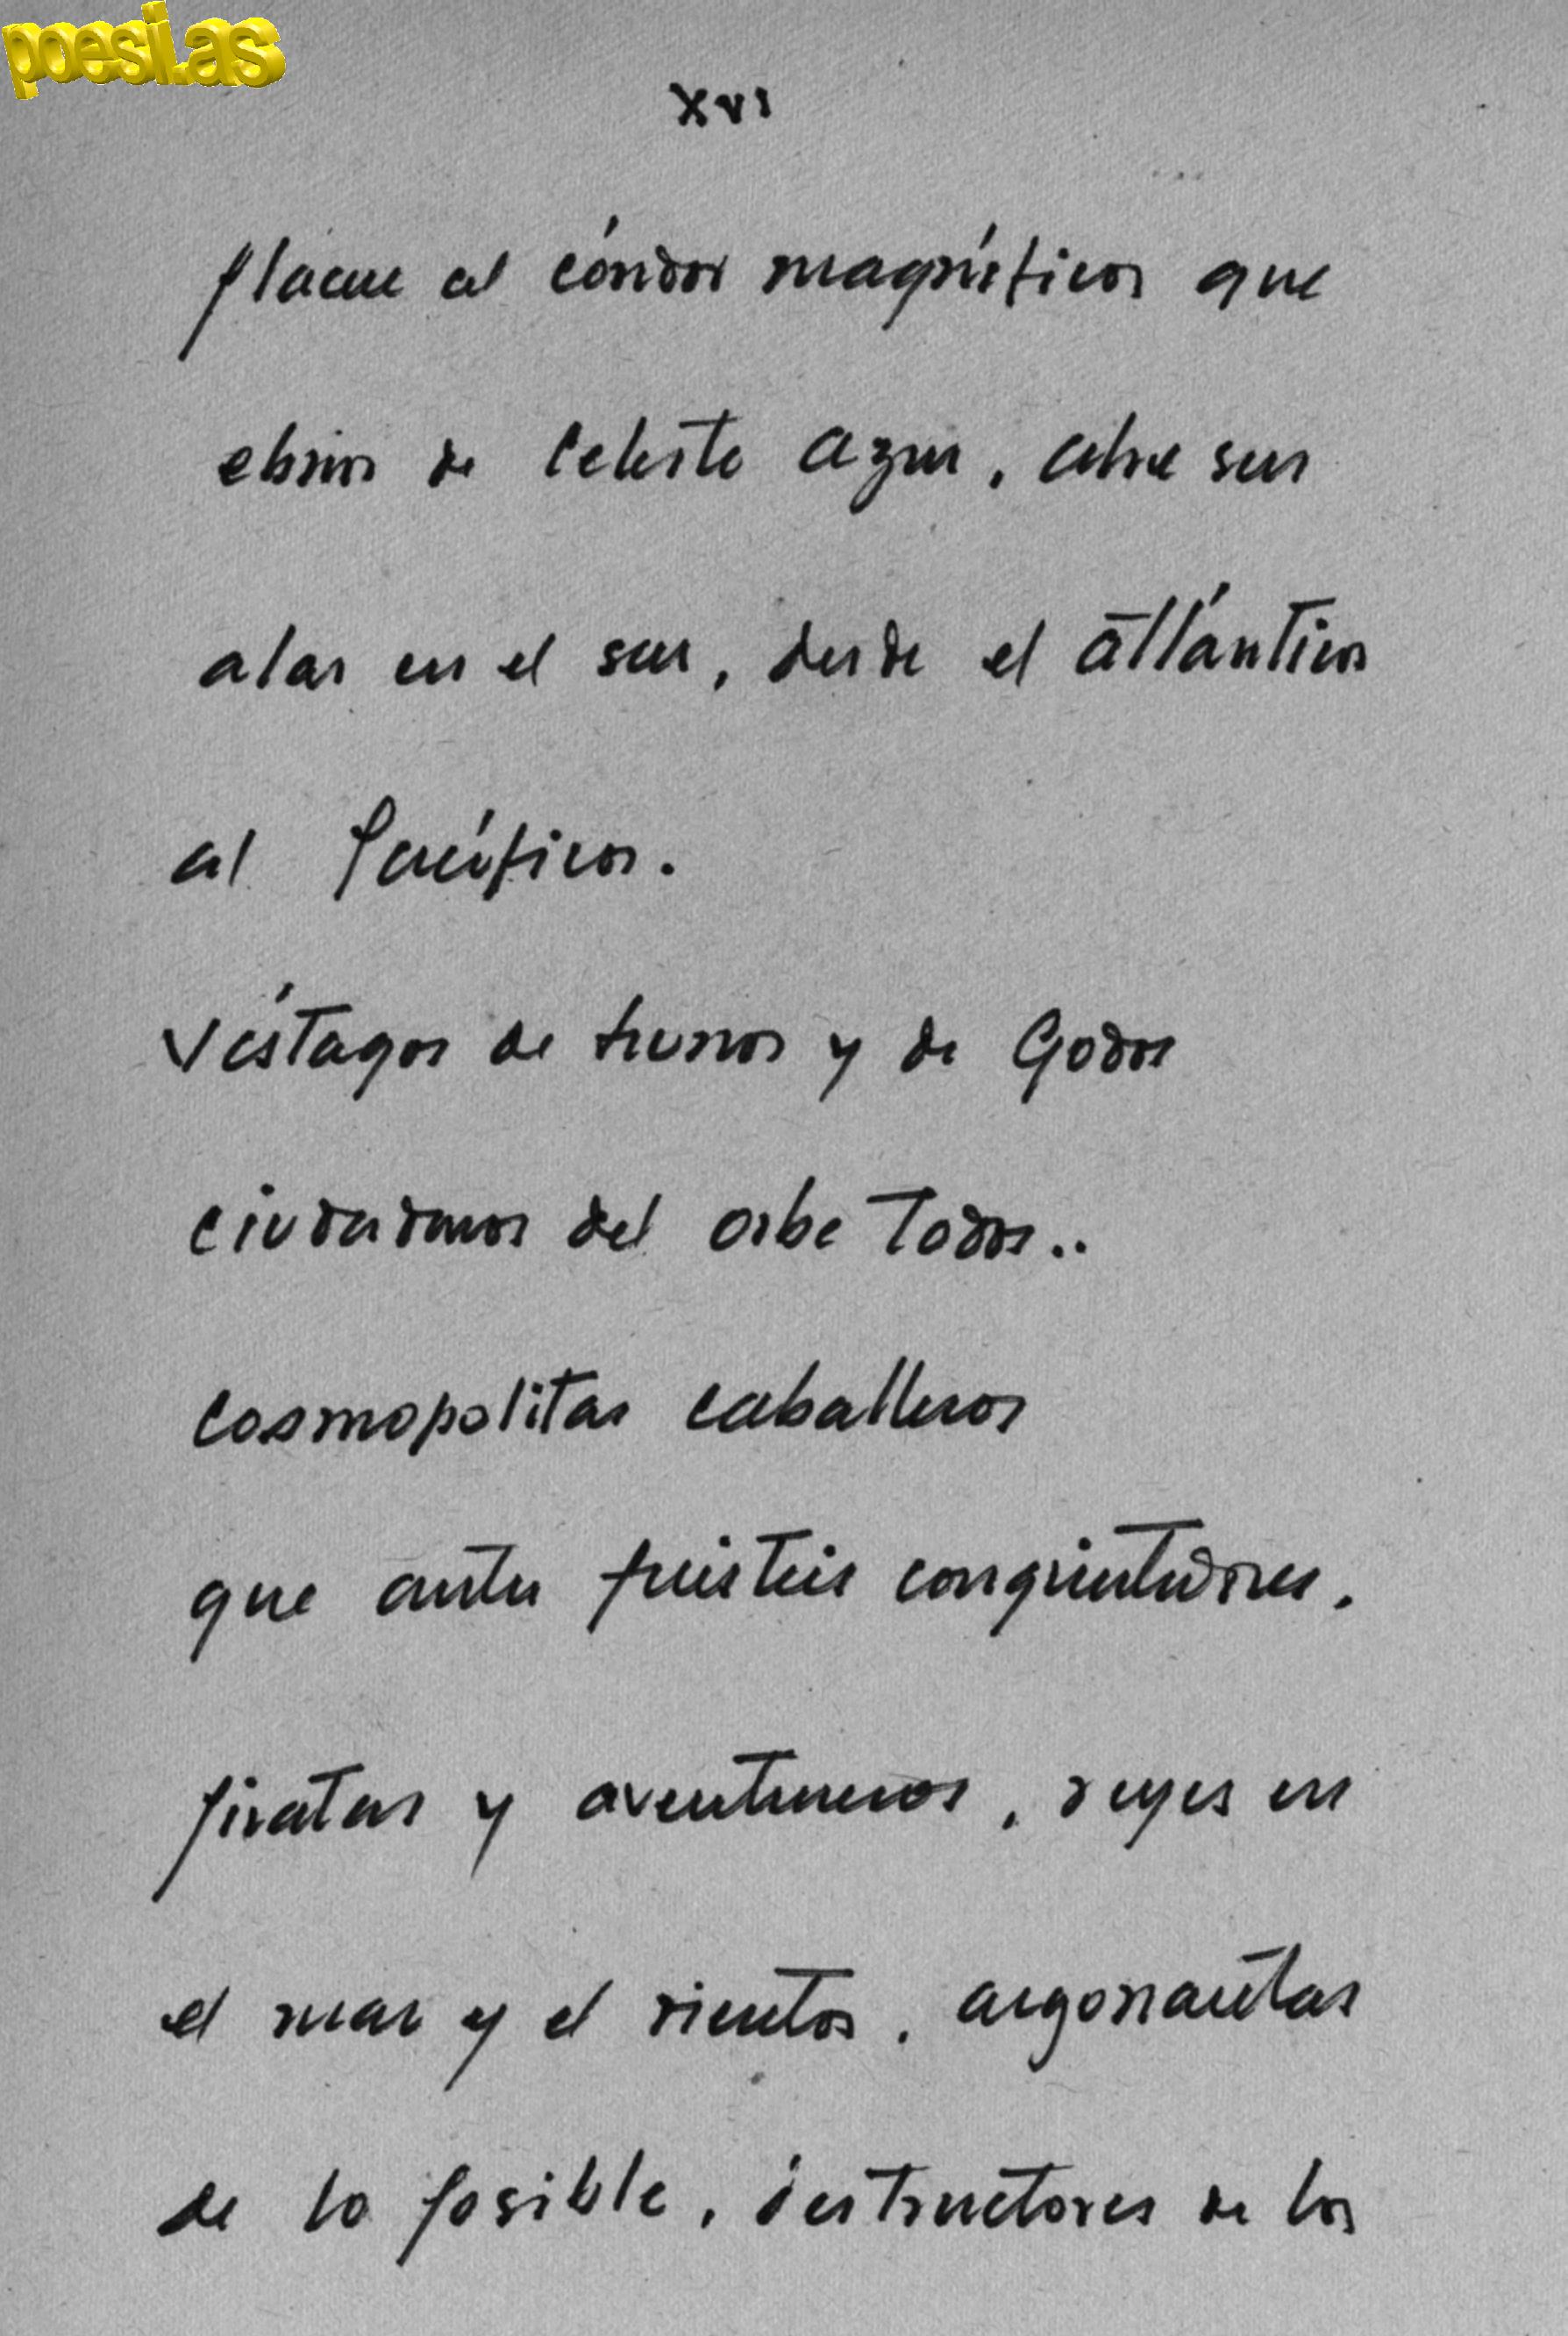 poesi.as
XVI
place al cóndor magnífico que
ebrio de celeste azur, abre sus
alas en el sur, desde el Atlántico
al Pacífico.
Véstagos de hunos y de Godos
ciudadanos del orbe Todos..
cosmopolitas caballeros
que antes fuisteis conquistadores,
piratas y aventureros, reyes en
el mar y el viento, argonautas
de lo posible, destructores de los